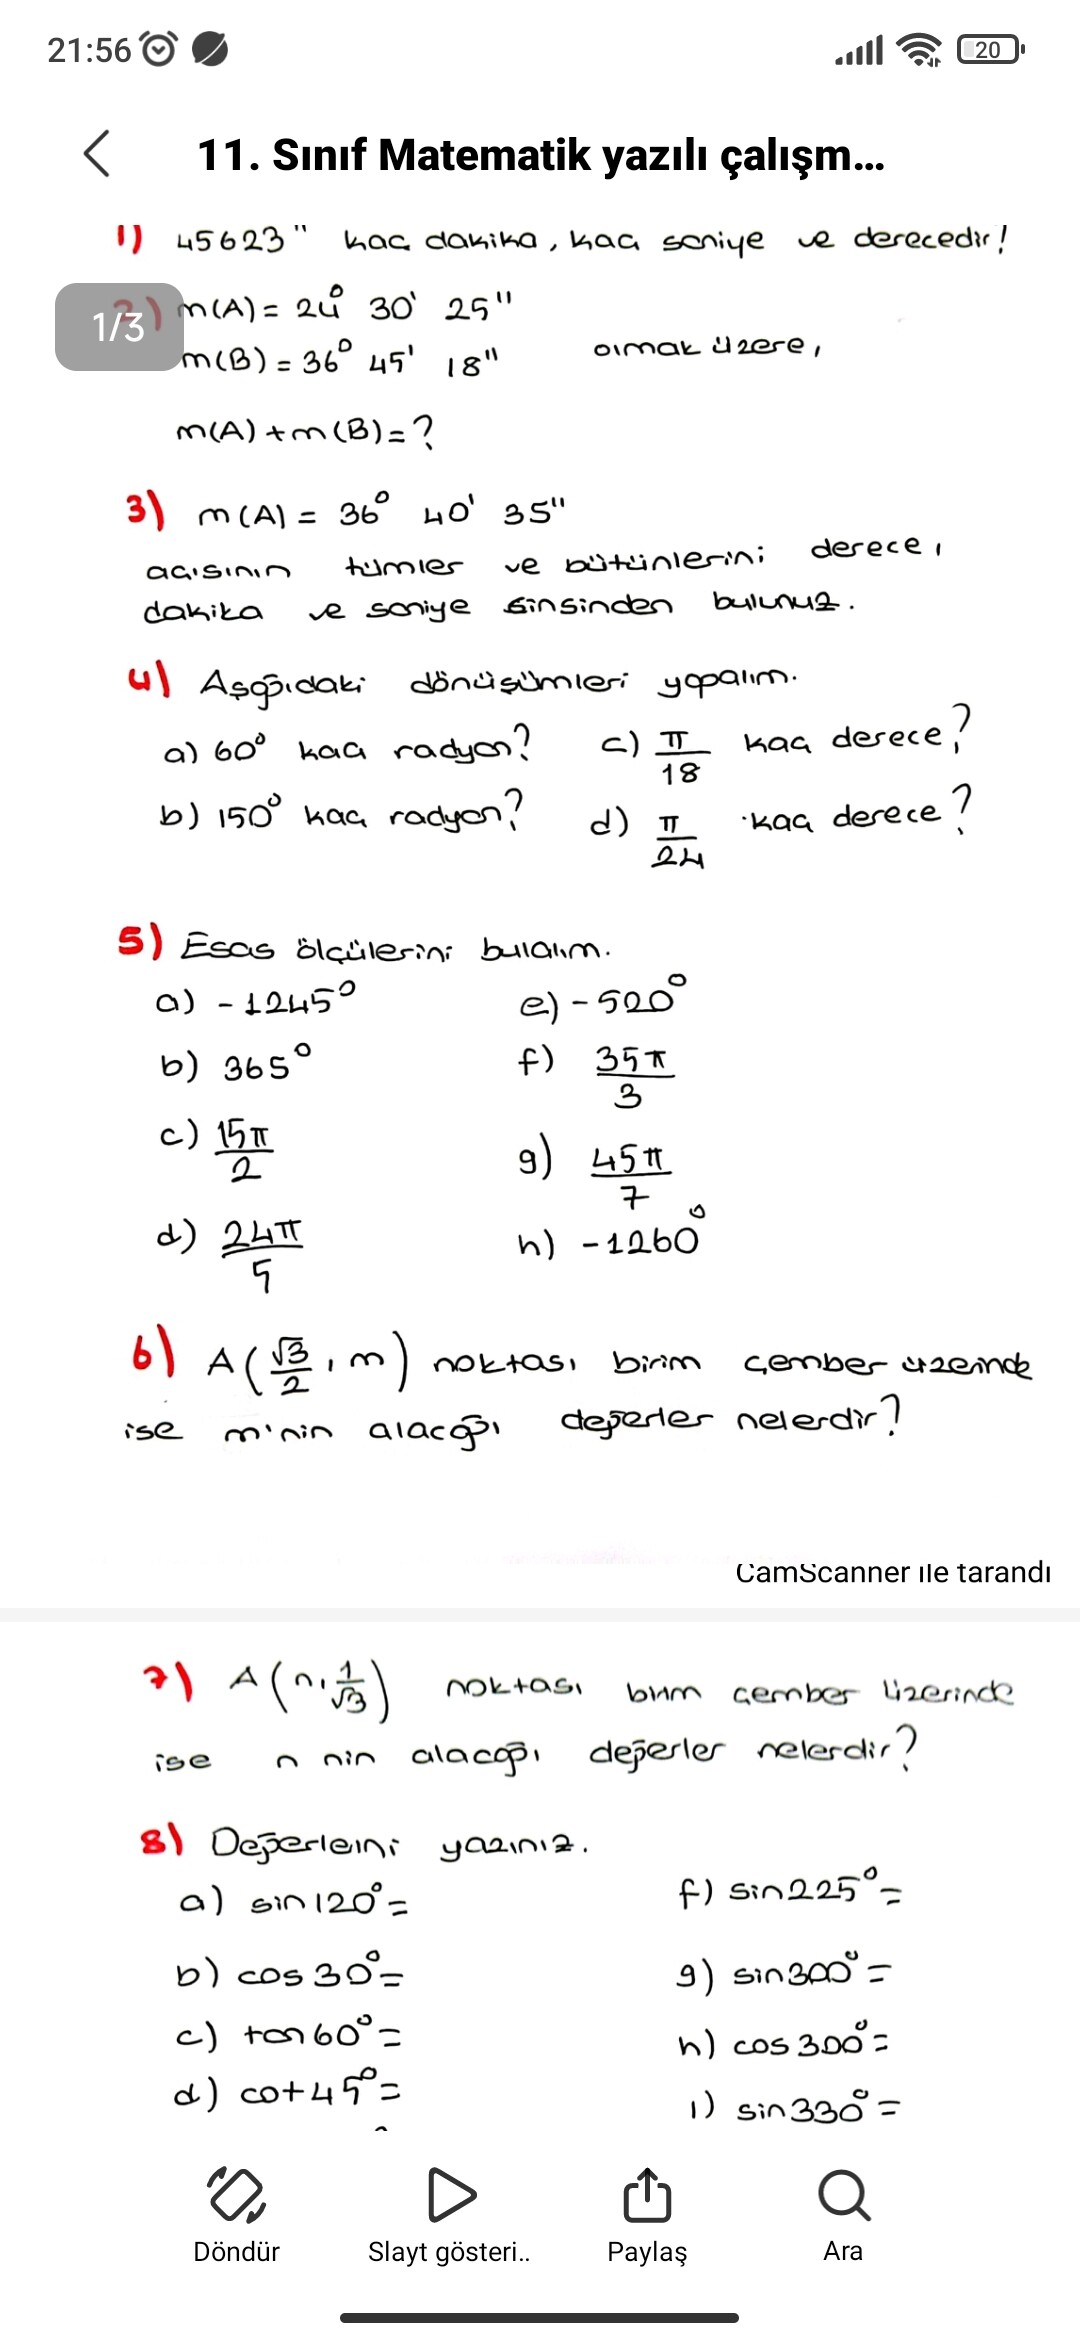 21:56
20
11. Sınıf Matematik yazılı çalışm...
1) 45623" kaç dakika, kaç saniye ve derecedir!
1/3
2) m(A) = 24° 30' 25"
m(B) = 36° 45' 18" olmak üzere,
m(A) + m(B) = ?
3) m(A) = 36° 40' 35"
açısının tümler ve bütünlerini derece,
dakika ve saniye cinsinden bulunuz.
4) Aşağıdaki dönüşümleri yapalım.
a) 60° kaç radyan? c) π/18 kaç derece?
b) 150° kaç radyan? d) π/24 kaç derece?
5) Esas ölçülerini bulalım.
a) -1245° e) -520°
b) 365° f) 35π/3
c) 15π/2 g) 45π/7
d) 24π/5 h) -1260°
6) A(√3/2, m) noktası birim çember üzerinde
ise m'nin alacağı değerler nelerdir?
CamScanner ile tarandı
7) A(n, 1/√3) noktası birim çember üzerinde
ise n nin alacağı değerler nelerdir?
8) Değerleini yazınız.
a) sin120° = f) sin225° =
b) cos30° = g) sin300° =
c) tan60° = h) cos300° =
d) cot45° = ı) sin330° =
Döndür Slayt gösteri.. Paylaş Ara